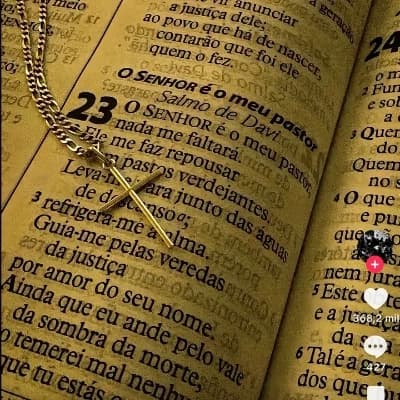 vir anunciar
a justiça dele;
ao povo que há de nascer,
contarão que foi ele
quem o fez.
O SENHOR é o meu pastor
Salmo de Davi
23 O SENHOR é o meu pastor;
nada me faltará.
Ele me faz repousar
pastos verdejantes.
Leva-me para junto das águas
de
3 refrigera-me a alma.
Guia-me pelas veredas
da justiça
por amor do seu nome.
Ainda que eu ande pelo vale
da sombra da morte,
temerei mal
que tu estás
a geração
24
o
2
e
a
3 Quem
do
Quem
no
4 O que
e
que
nem jura
5 Este
e a
da
6 Tal é a
dos que
368,2 mil
427